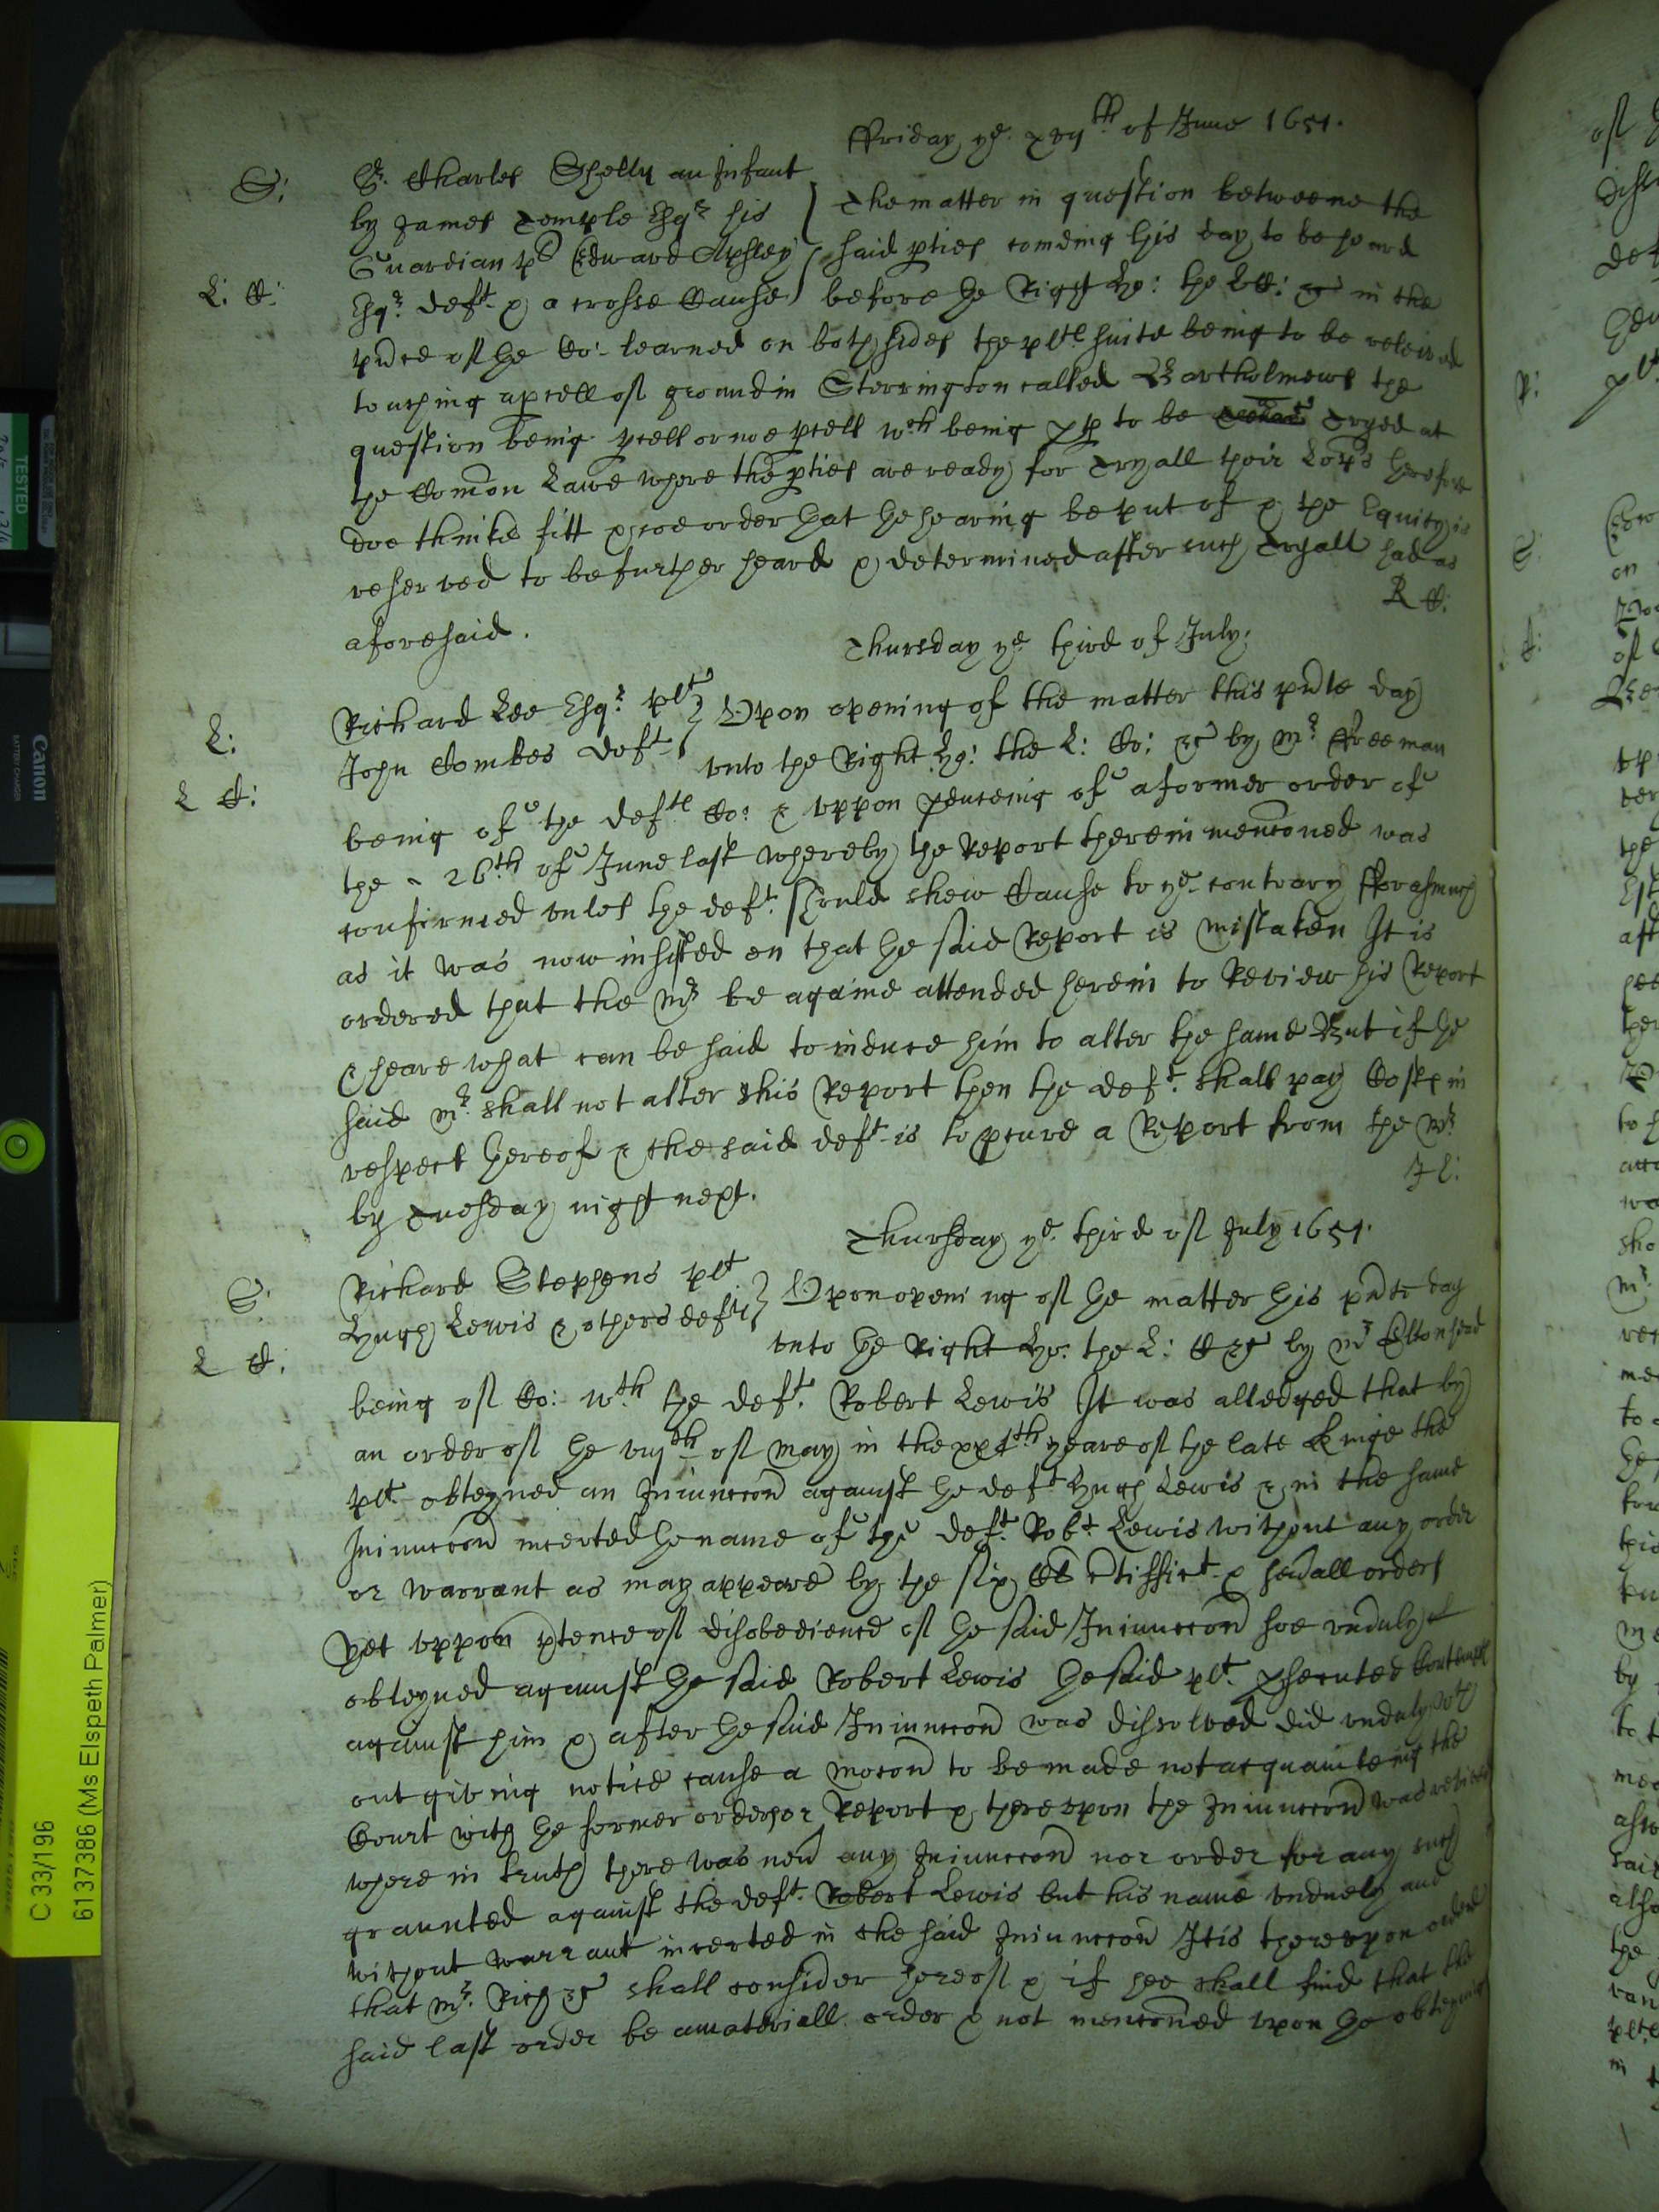 ffriday ye. xxvijth. of June 1651.
S: Sr. Charles Shelly an Infant
by James Temple Esqr his
Guardian pl Edward Apsley
L: C: Esqr. deft & a crosse Cause
The matter in question betweene the
said pties comeing this day to be heard
before the Right Ho: the LC: &c in the
pnce of the Co: learned on both sides the plts suite being to be releived
touching a pcell of ground in Storrington called Bartholmews the
question being pcell or noe pcell wch being pp to be Tryed at
the Comon Lawe where the pties are ready for Tryall their Lopps therefore
doe thinke fitt & soe order that the hearing be put of & the Equity is
reserved to be further heard & determined after such Tryall had as
aforesaid. R C:
Thursday ye third of July.
L: Richard Lee Esqr. plt
L C: John Combes deft
Upon opening of the matter this pnte day
vnto the Right Ho: the L: Co: &c by mr. ffreeman
being of the defts Co: & vppon pduceing of a former order of
the 26th of June last whereby the Report therein menconed was
confirmed vnles the deft. should shew Cause to ye contrary fforasmuch
as it was now insisted on that the said Report is mistaken It is
ordered that the mr be againe attended herein to Review his Report
& heare what can be said to induce him to alter the same But if the
said mr. shall not alter this Report then the deft. shall pay Costs in
respect hereof & the said deft is to pcure a Report from the mr.
by Tuesday night next. J l:
Thursday ye. third of July 1651.
S: Richard Stephens plt
L C: Hugh Lewis & others defts
Upon opening of the matter this pnte day
vnto the Right Ho: the L: C &c by mr Eltonhead
being of Co: wth. the deft. Robert Lewis It was alledged that by
an order of the viijth of May in the xxjth yeare of the late Kinge the
plt. obteyned an Iniunccon against the deft Hugh Lewis & in the same
Iniunccon incerted the name of the deft. Robt. Lewis without any order
or warrant as may appeare by the six Cl ctifficat & seuall orders
Yet vppon ptence of disobedience of the said Iniunccon soe vnduly
obteyned against the said Robert Lewis the said plt. psecuted Contempt
against him & after the said Iniunccon was dissolved did vnduly wth
out giving notice cause a mocon to be made not acquainteing the
Court with the former orders or Report & therevpon the Iniunccon was revived
where in truth there was neu any Iniunccon nor order for any such
graunted against the deft. Robert Lewis but his name vnduely and
without warrant incerted in the said Iniunccon It is therevpon ordered
that mr. Rich &c shall consider hereof & if hee shall find that the
said last order be a materiall order & not mencioned vpon the obteyning
TESTED
Canon
BATTERY CHARGER
C 33/196
6137386 (Ms Elspeth Palmer)